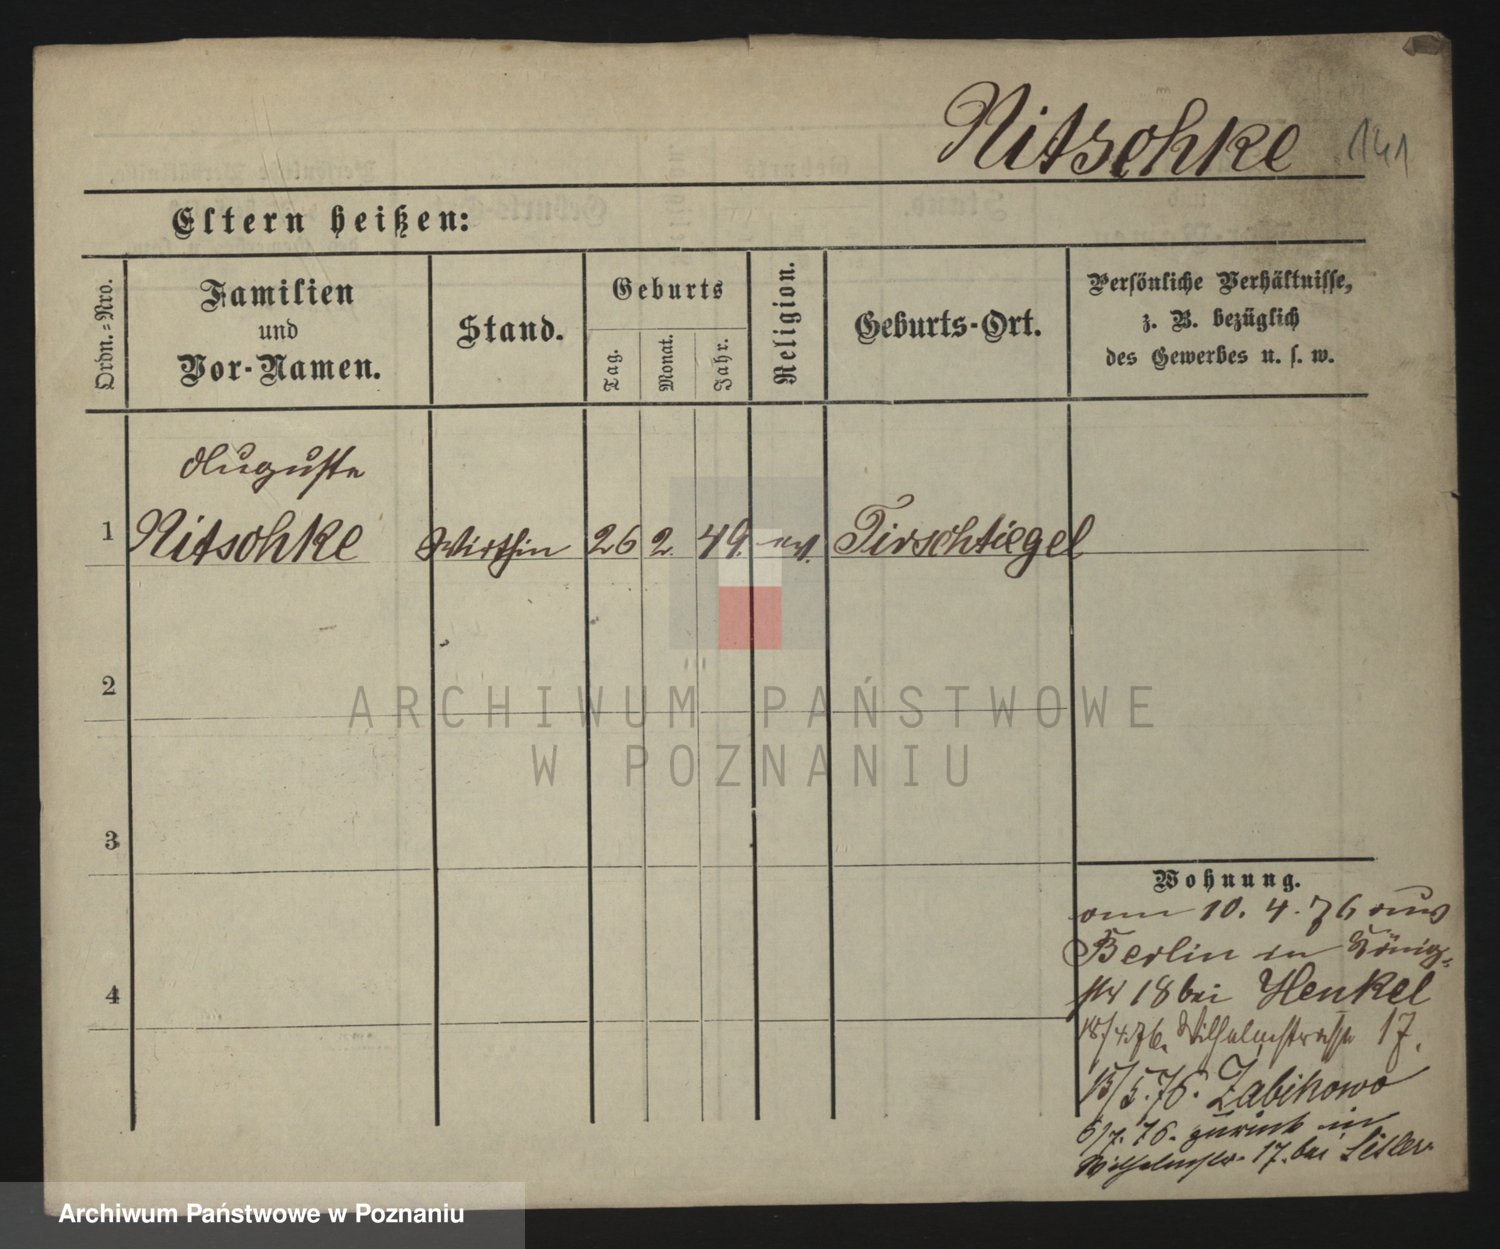 Nitschke 141
Eltern heißen:
Ordn.=Nro.
Familien
und
Vor-Namen.
Stand.
Geburts
Tag.
Monat.
Jahr.
Religion.
Geburts-Ort.
Persönliche Verhältnisse,
z. B. bezüglich
des Gewerbes u. s. w.
Auguste
1 Nitschke Wirthin 26 2. 49. ev. Tirschtiegel
2
3
4
Wohnung.
vom 10. 4. 76 aus
Berlin in König=
str 18 bei Henkel
18/4.76. Wilhelmstraße 17.
15/5.76. Zabikowo
6/7. 76. zurück in
Wilhelmstr. 17. bei
ARCHIWUM PAŃSTWOWE
W POZNANIU
Archiwum Państwowe w Poznaniu